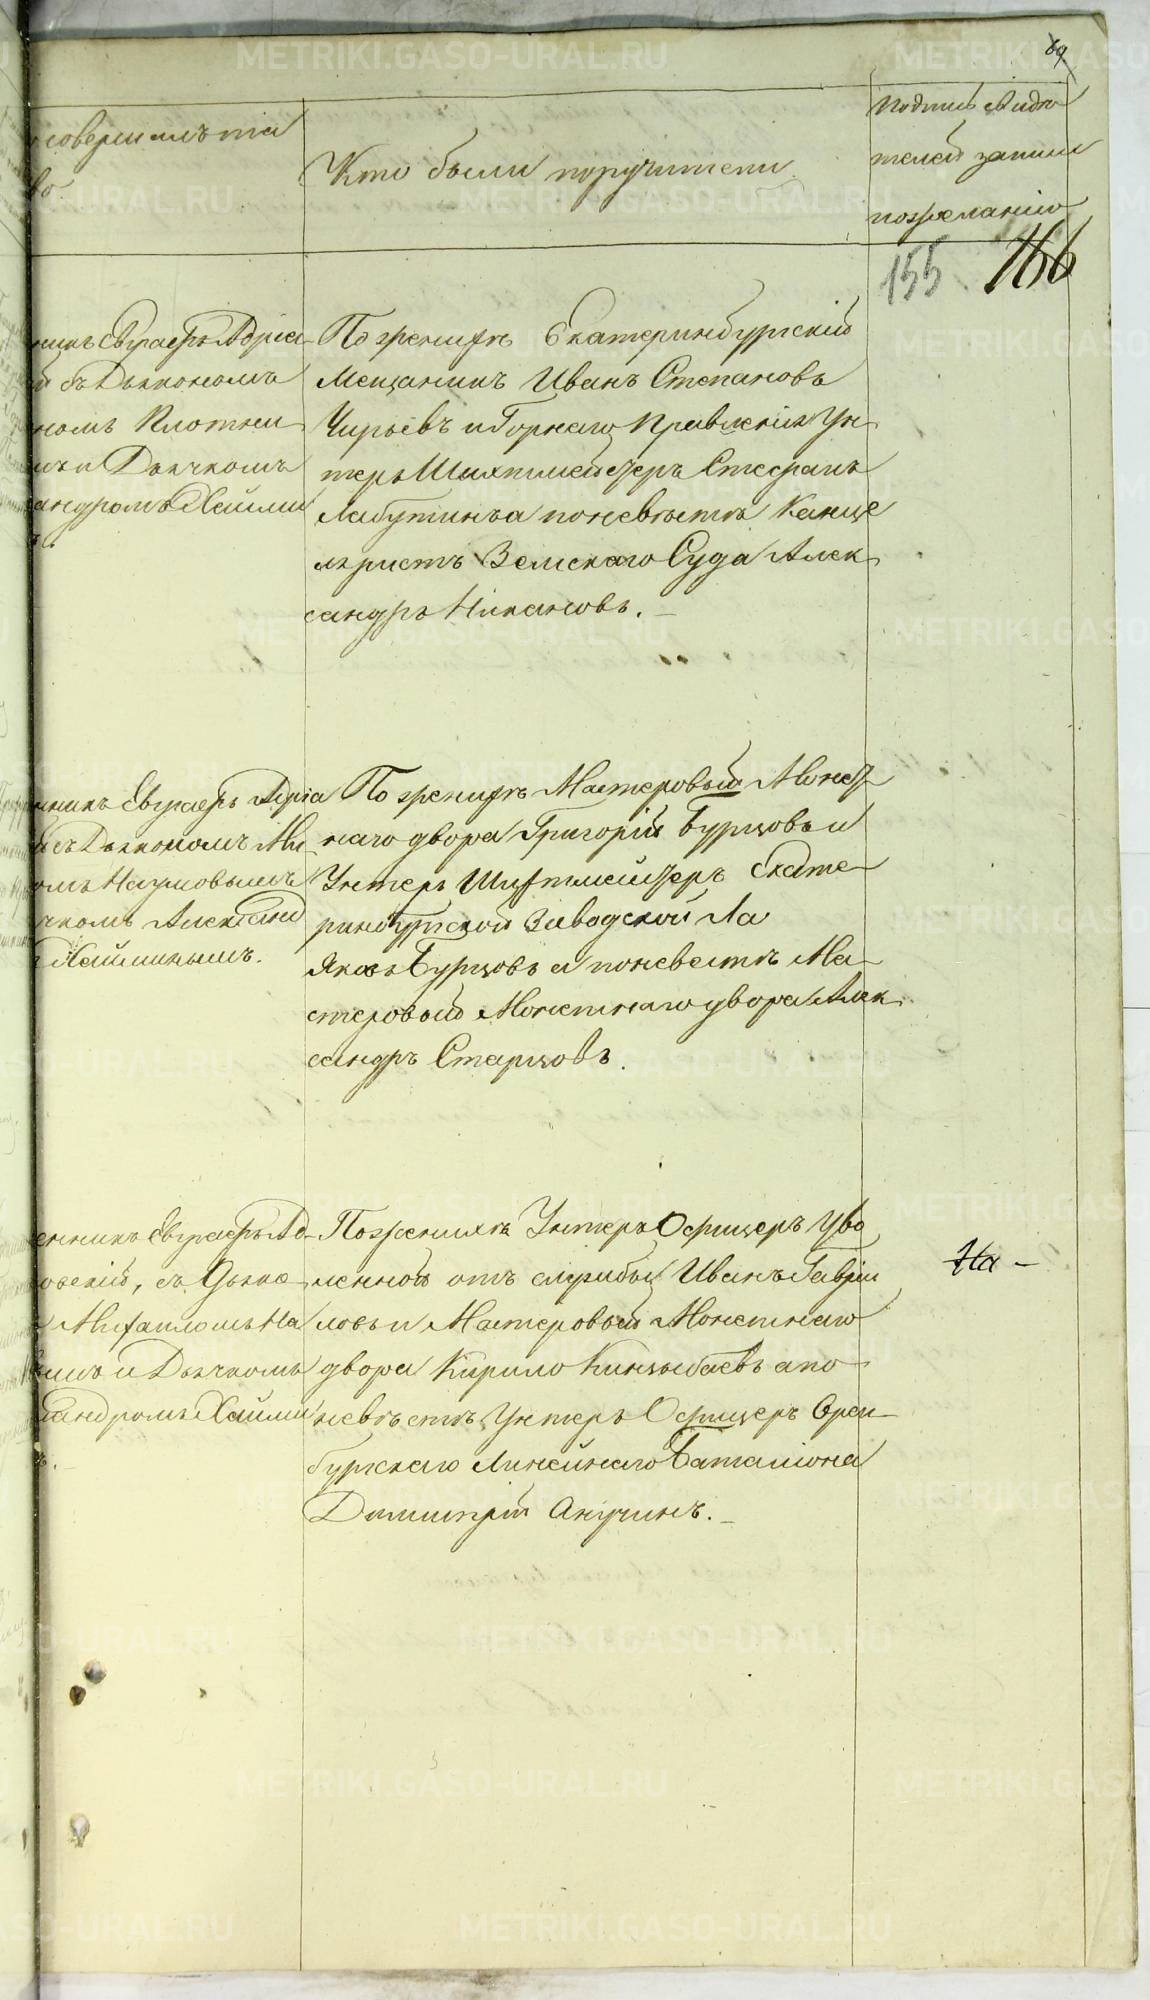 совершилъ та
во.
Кто были поручители
Подпись свидѣ
телей записи
по желанію
155 166
никъ Евграфъ Адріа
й съ Діакономъ
номъ Плотни
мъ и Дьячкомъ
андромъ Хайми
ъ.
По женихѣ Екатеринбургскій
Мещанинъ Иванъ Степановъ
Чирьевъ и Горнаго Правленія Ун
теръ Шихтмейстеръ Стефанъ
Лабутинъ а по невѣстѣ Канце
ляристъ Земскаго Суда Алек
сандръ Никановъ.
нникъ Евграфъ Адріа
съ Діакономъ Ми
омъ Наумовымъ
чкомъ Александ
Хайминымъ.
По женихѣ Мастеровый Монет
наго двора Григорій Бурцовъ и
Унтеръ Шихтмейстеръ Екате
ринбургской Заводской
Яковъ Бурцовъ а по невестѣ Ма
стеровый Монетнаго двора Алек
сандръ Старцовъ.
енникъ Евграфъ Ад
овскій, съ Діако
Михаиломъ На
вымъ и Дьячкомъ
сандромъ Хайми
ъ.
По женихѣ Унтеръ Офицеръ Уво
ленной отъ службы Иванъ Гаври
ловъ и Мастеровый Монетнаго
двора Кирило Кинзыбаевъ а по
невѣстѣ Унтеръ Офицеръ Орен
бургскаго Линейнаго Баталіона
Димитрій Анучинъ.
На
METRIKI.GASO-URAL.RU